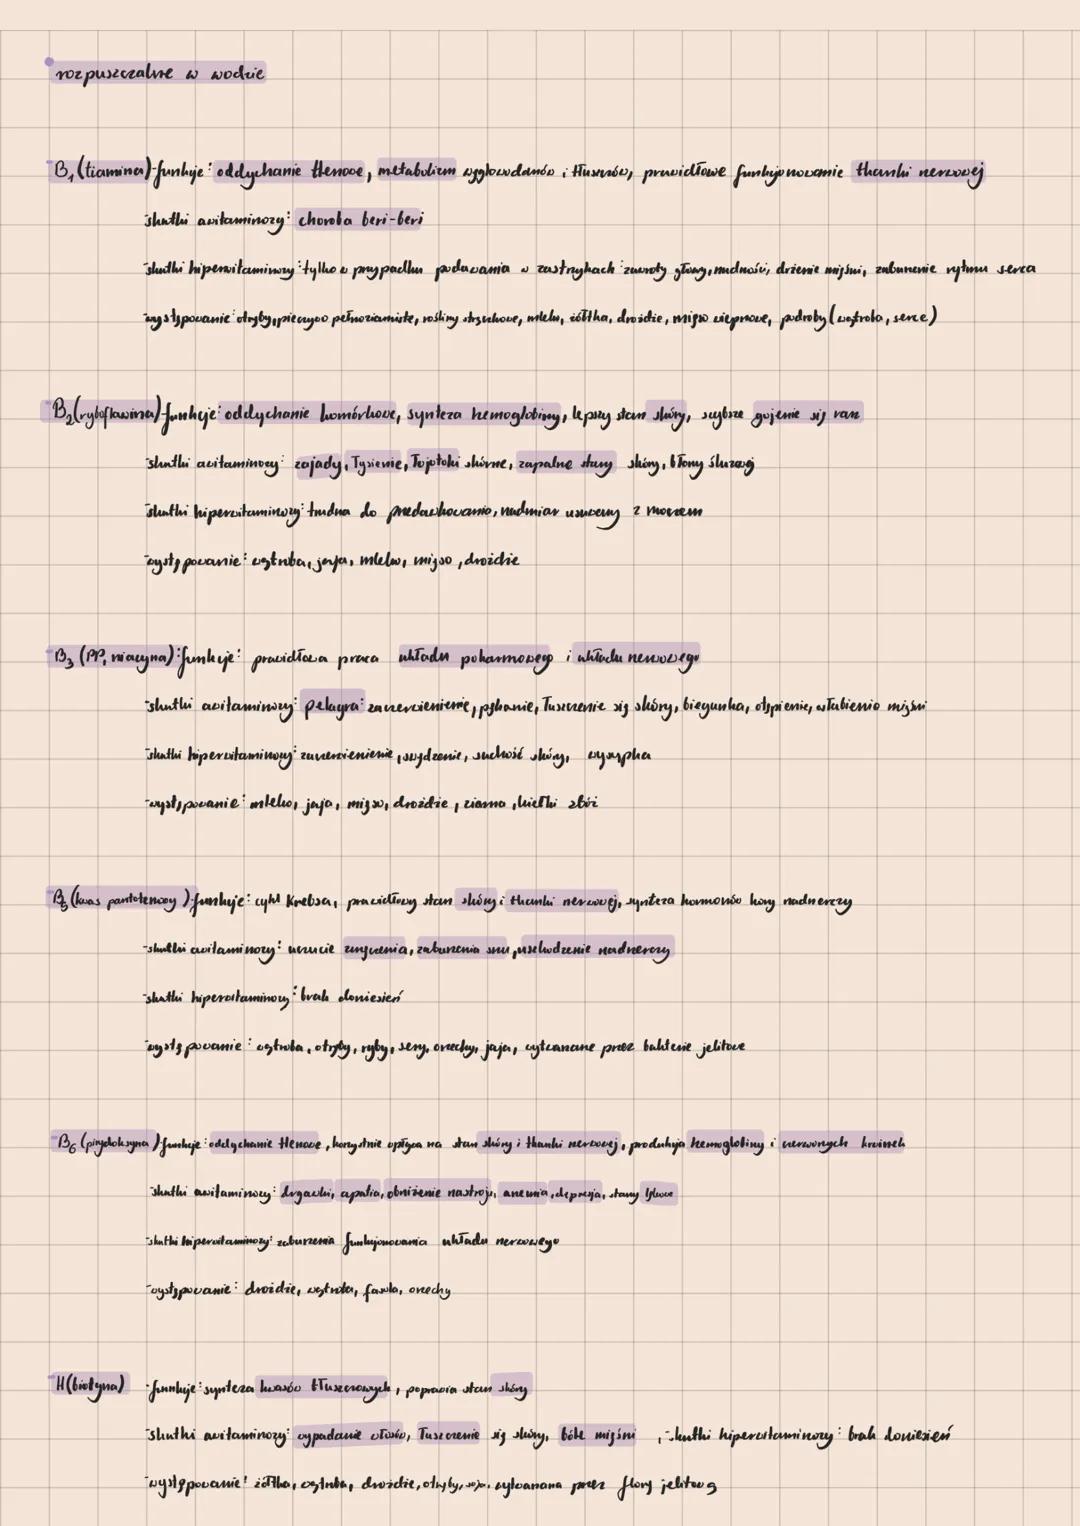 rozpuszczalne w wodzie
B₁ (tiamina) - funkcje: oddychanie tlenowe, metabolizm węglowodanów i tłuszczów, prawidłowe funkcjonowanie tkanki nerwowej
- skutki awitaminozy: choroba beri-beri
- skutki hiperwitaminozy: tylko w przypadku podawania w zastrzykach: zawroty głowy, nudności, drżenie mięśni, zaburzenie rytmu serca
- występowanie: otręby, pieczywo pełnoziarniste, rośliny strączkowe, mleko, żółtka, drożdże, mięso wieprzowe, podroby (wątroba, serce)
- B₂ (ryboflawina) - funkcje: oddychanie komórkowe, synteza hemoglobiny, lepszy stan skóry, szybsze gojenie się ran
- skutki awitaminozy: zajady, łysienie, łojotoki skórne, zapalne stany skóry, błony śluzowej
- skutki hiperwitaminozy: trudna do przedawkowania, nadmiar usuwany z moczem
- występowanie: wątroba, jaja, mleko, mięso, drożdże
- B₃ (PP, niacyna): funkcje: prawidłowa praca układu pokarmowego i układu nerwowego
- skutki awitaminozy: pelagra: zaczerwienienie, pękanie, łuszczenie się skóry, biegunka, otępienie, osłabienie mięśni
- skutki hiperwitaminozy: zaczerwienienie, swędzenie, suchość skóry, wysypka
- występowanie: mleko, jaja, mięso, drożdże, ziarna, kiełki zbóż
- B₅ (kwas pantotenowy) - funkcje: cykl Krebsa, prawidłowy stan skóry i tkanki nerwowej, synteza hormonów kory nadnerczy
- skutki awitaminozy: uczucie zmęczenia, zaburzenia snu, uszkodzenie nadnerczy
- skutki hiperwitaminozy: brak doniesień
- występowanie: wątroba, otręby, ryby, sery, orzechy, jaja, wytwarzane przez bakterie jelitowe
- B₆ (pirydoksyna) - funkcje: oddychanie tlenowe, korzystnie wpływa na stan skóry i tkanki nerwowej, produkcja hemoglobiny i czerwonych krwinek
- skutki awitaminozy: drgawki, apatia, obniżenie nastroju, anemia, depresja, stany lękowe
- skutki hiperwitaminozy: zaburzenia funkcjonowania układu nerwowego
- występowanie: drożdże, wątroba, fasola, orzechy
- H (biotyna) - funkcje: synteza kwasów tłuszczowych, poprawia stan skóry
- skutki awitaminozy: wypadanie włosów, łuszczenie się skóry, bóle mięśni, - skutki hiperwitaminozy: brak doniesień
- występowanie: żółtka, wątroba, drożdże, otręby, soja, wytwarzana przez florę jelitową